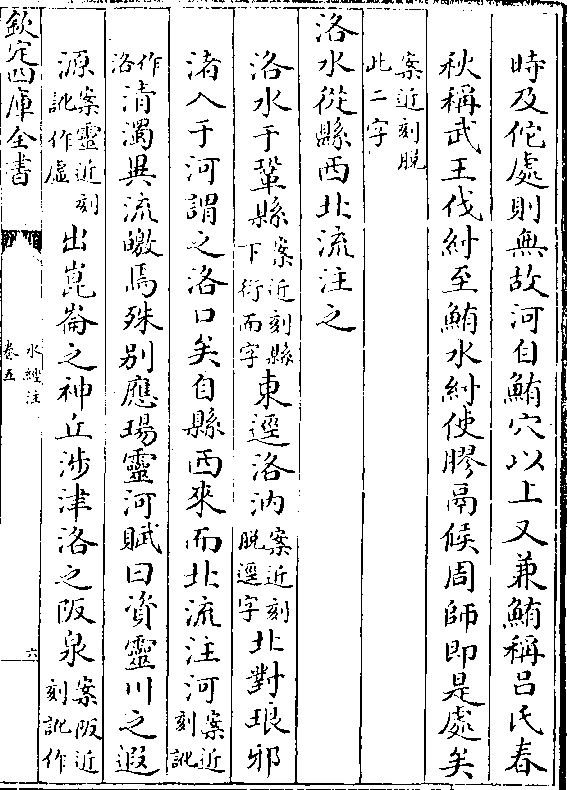 時及佗處則無故河自鮪穴以上又兼鮪稱呂氏春
秋稱武王伐紂至鮪水紂使膠鬲候周師即是處矣
案近刻脫
此二字
洛水從縣西北流注之
洛水于鞏縣案近刻縣下衍而字東逕洛汭案近刻脫逕字北對琅邪
渚入于河謂之洛口矣自縣西來而北流注河案近刻訛
作洛清濁異流皦焉殊别應瑒靈河賦曰資靈川之遐
源案靈近刻訛作虛出崑崙之神丘涉津洛之阪泉案阪近刻訛作
欽定四庫全書
水經注
卷五
六